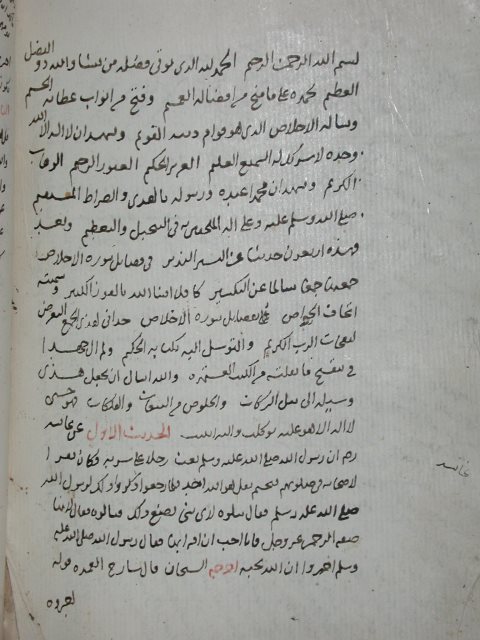 بسم الله الرحمن الرحيم الحمد لله الذى يوتى فضله من يشا والله ذو الفضل
العظيم نحمده على ما منح من افضاله العميم وفتح من ابواب عطائه الجسيم
ونساله الاخلاص الذى هو قوام دينه القويم ونشهد ان لا اله الا الله
وحده لا شريك له السميع العليم العزيز الحكيم الغفور الرحيم الوهاب
الكريم ونشهد ان محمدا عبده ورسوله بالهدى والصراط المستقيم
صلى الله وسلم عليه وعلى اله فى التبجيل والتعظيم وبعد
فهذه اربعون حديثا عن البشير النذير فى فضايل سورة الاخلاص
جمعتها جمعا سالما عن التكسير كافلا ان شا الله بالفوز الكبير وسميته
اتحاف الخواص بفضايل سورة الاخلاص حدانى لهذى الجمع التعرض
لنفحات الرب الكريم والتوسل اليه بكتابه الحكيم ولم ال جهدا
فى تنقيح ما نقلته من الكتب المعتبره والله اسال ان يجعل هذى
وسيلة الى نيل البركات والخلوص من التبعات فهو حسبى
لا اله الا هو عليه توكلت واليه انيب الحديث الاول عن عائشه
رضى ان رسول الله صلى الله عليه وسلم بعث رجلا على سريه وكان يقرا
لاصحابه فى صلوتهم فيختم بقل هو الله احد فلما رجعوا ذكروا ذلك لرسول الله
صلى الله عليه وسلم فقال سلوه لاى شى يصنع ذلك فسالوه فقال لانها
صفه الرحمن عز وجل فانا احب ان اقرا بها فقال رسول الله صلى الله عليه
وسلم اخبروه ان الله يحبه اخرجه الشيخان قال شارح العمده قوله
عائشه